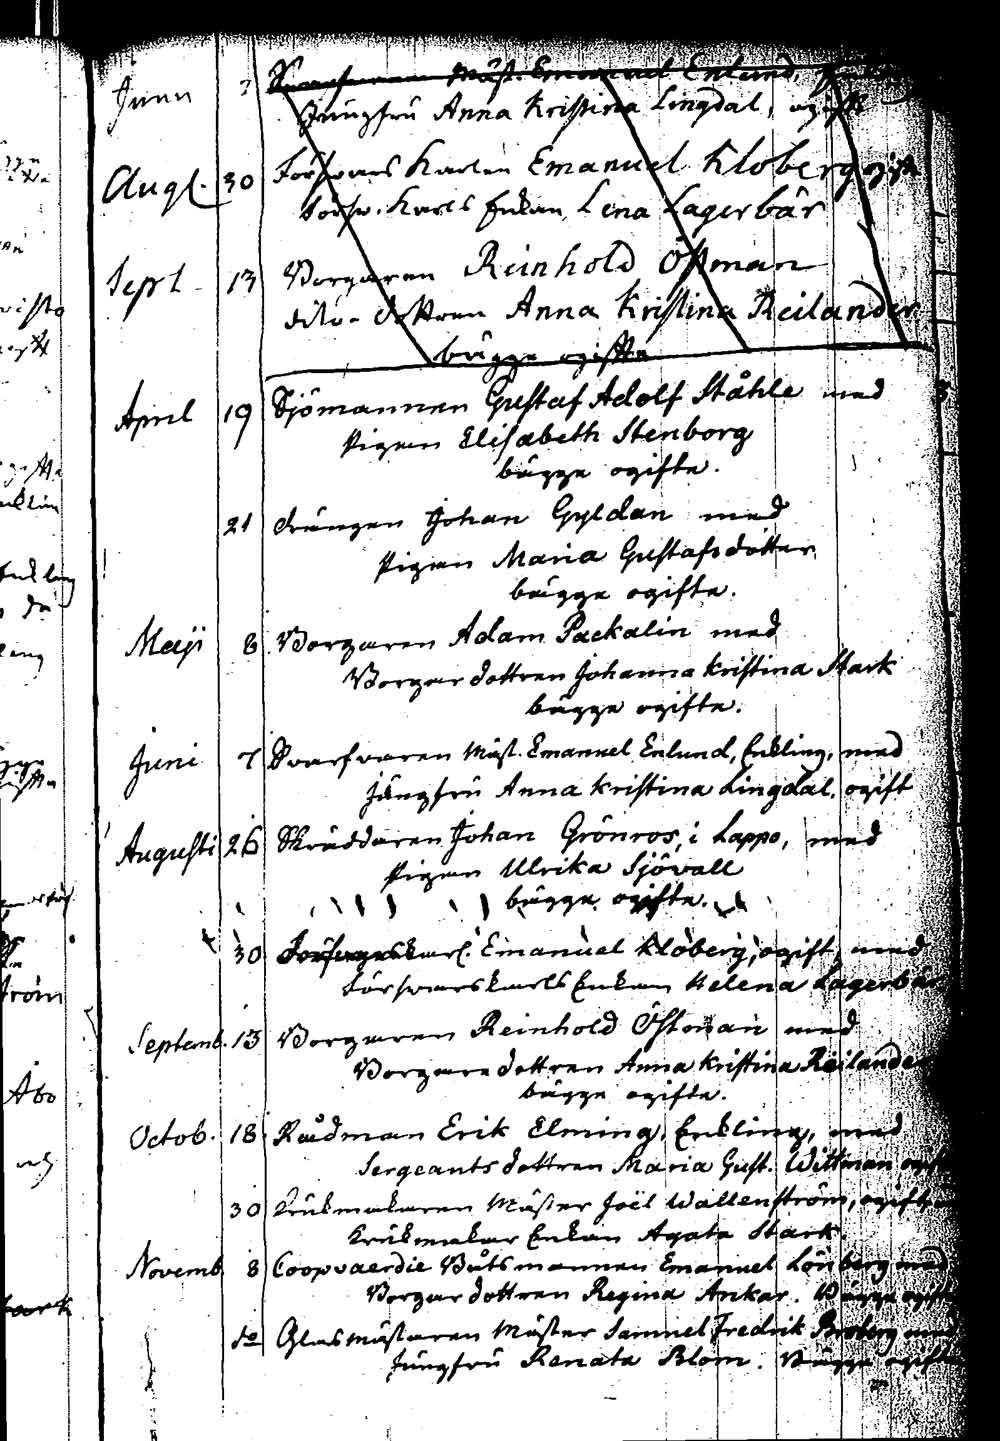 Junii 7 Svarfvaren Mäst. Emanuel Enlund,
Jungfru Anna Kristina Lingdal, ogift
Augt. 30 Försvars Karlen Emanuel Kloberg ogift
Försv. Karls Enkan Lena Lagerbär
Sept 13 Borgaren Reinhold Östman
dito dottren Anna Kristina Reilander
bägge ogifta
April 19 Sjömannen Gustaf Adolf Ståhle med
Pigan Elisabeth Stenborg
bägge ogifta.
21 Drängen Johan Gyldan med
Pigan Maria Gustafsdotter
bägge ogifta.
Maji 8 Borgaren Adam Packalin med
Borgar dottren Johanna Kristina Stark
bägge ogifta.
Juni 7 Svarfvaren Mäst. Emanuel Enlund, Enkling, med
Jungfru Anna Kristina Lingdal, ogift
Augusti 26 Skräddaren Johan Grönros, i Lappo, med
Pigan Ulrika Sjövall
bägge ogifta.
30 Försvarskarl. Emanuel Kloberg, ogift, med
Försvarskarls Enkan Helena Lagerbär
Septemb. 13 Borgaren Reinhold Östman med
Borgaredottren Anna Kristina Reilander
bägge ogifta.
Octob. 18 Rådman Erik Elming, Enkling, med
Sergeants dottren Maria Gust. Wittman ogift
30 Krukmakaren Mäster Joël Wallenström, ogift,
Krukmakar Enkan Agata Stark.
Novemb. 8 Coopvaerdie Båtsmannen Emanuel Lönberg med
Borgar dottren Regina Ankar. Bägge ogifta
do Glasmästaren Mäster Samuel Fredrik Broberg med
Jungfru Renata Blom. Bägge ogifta